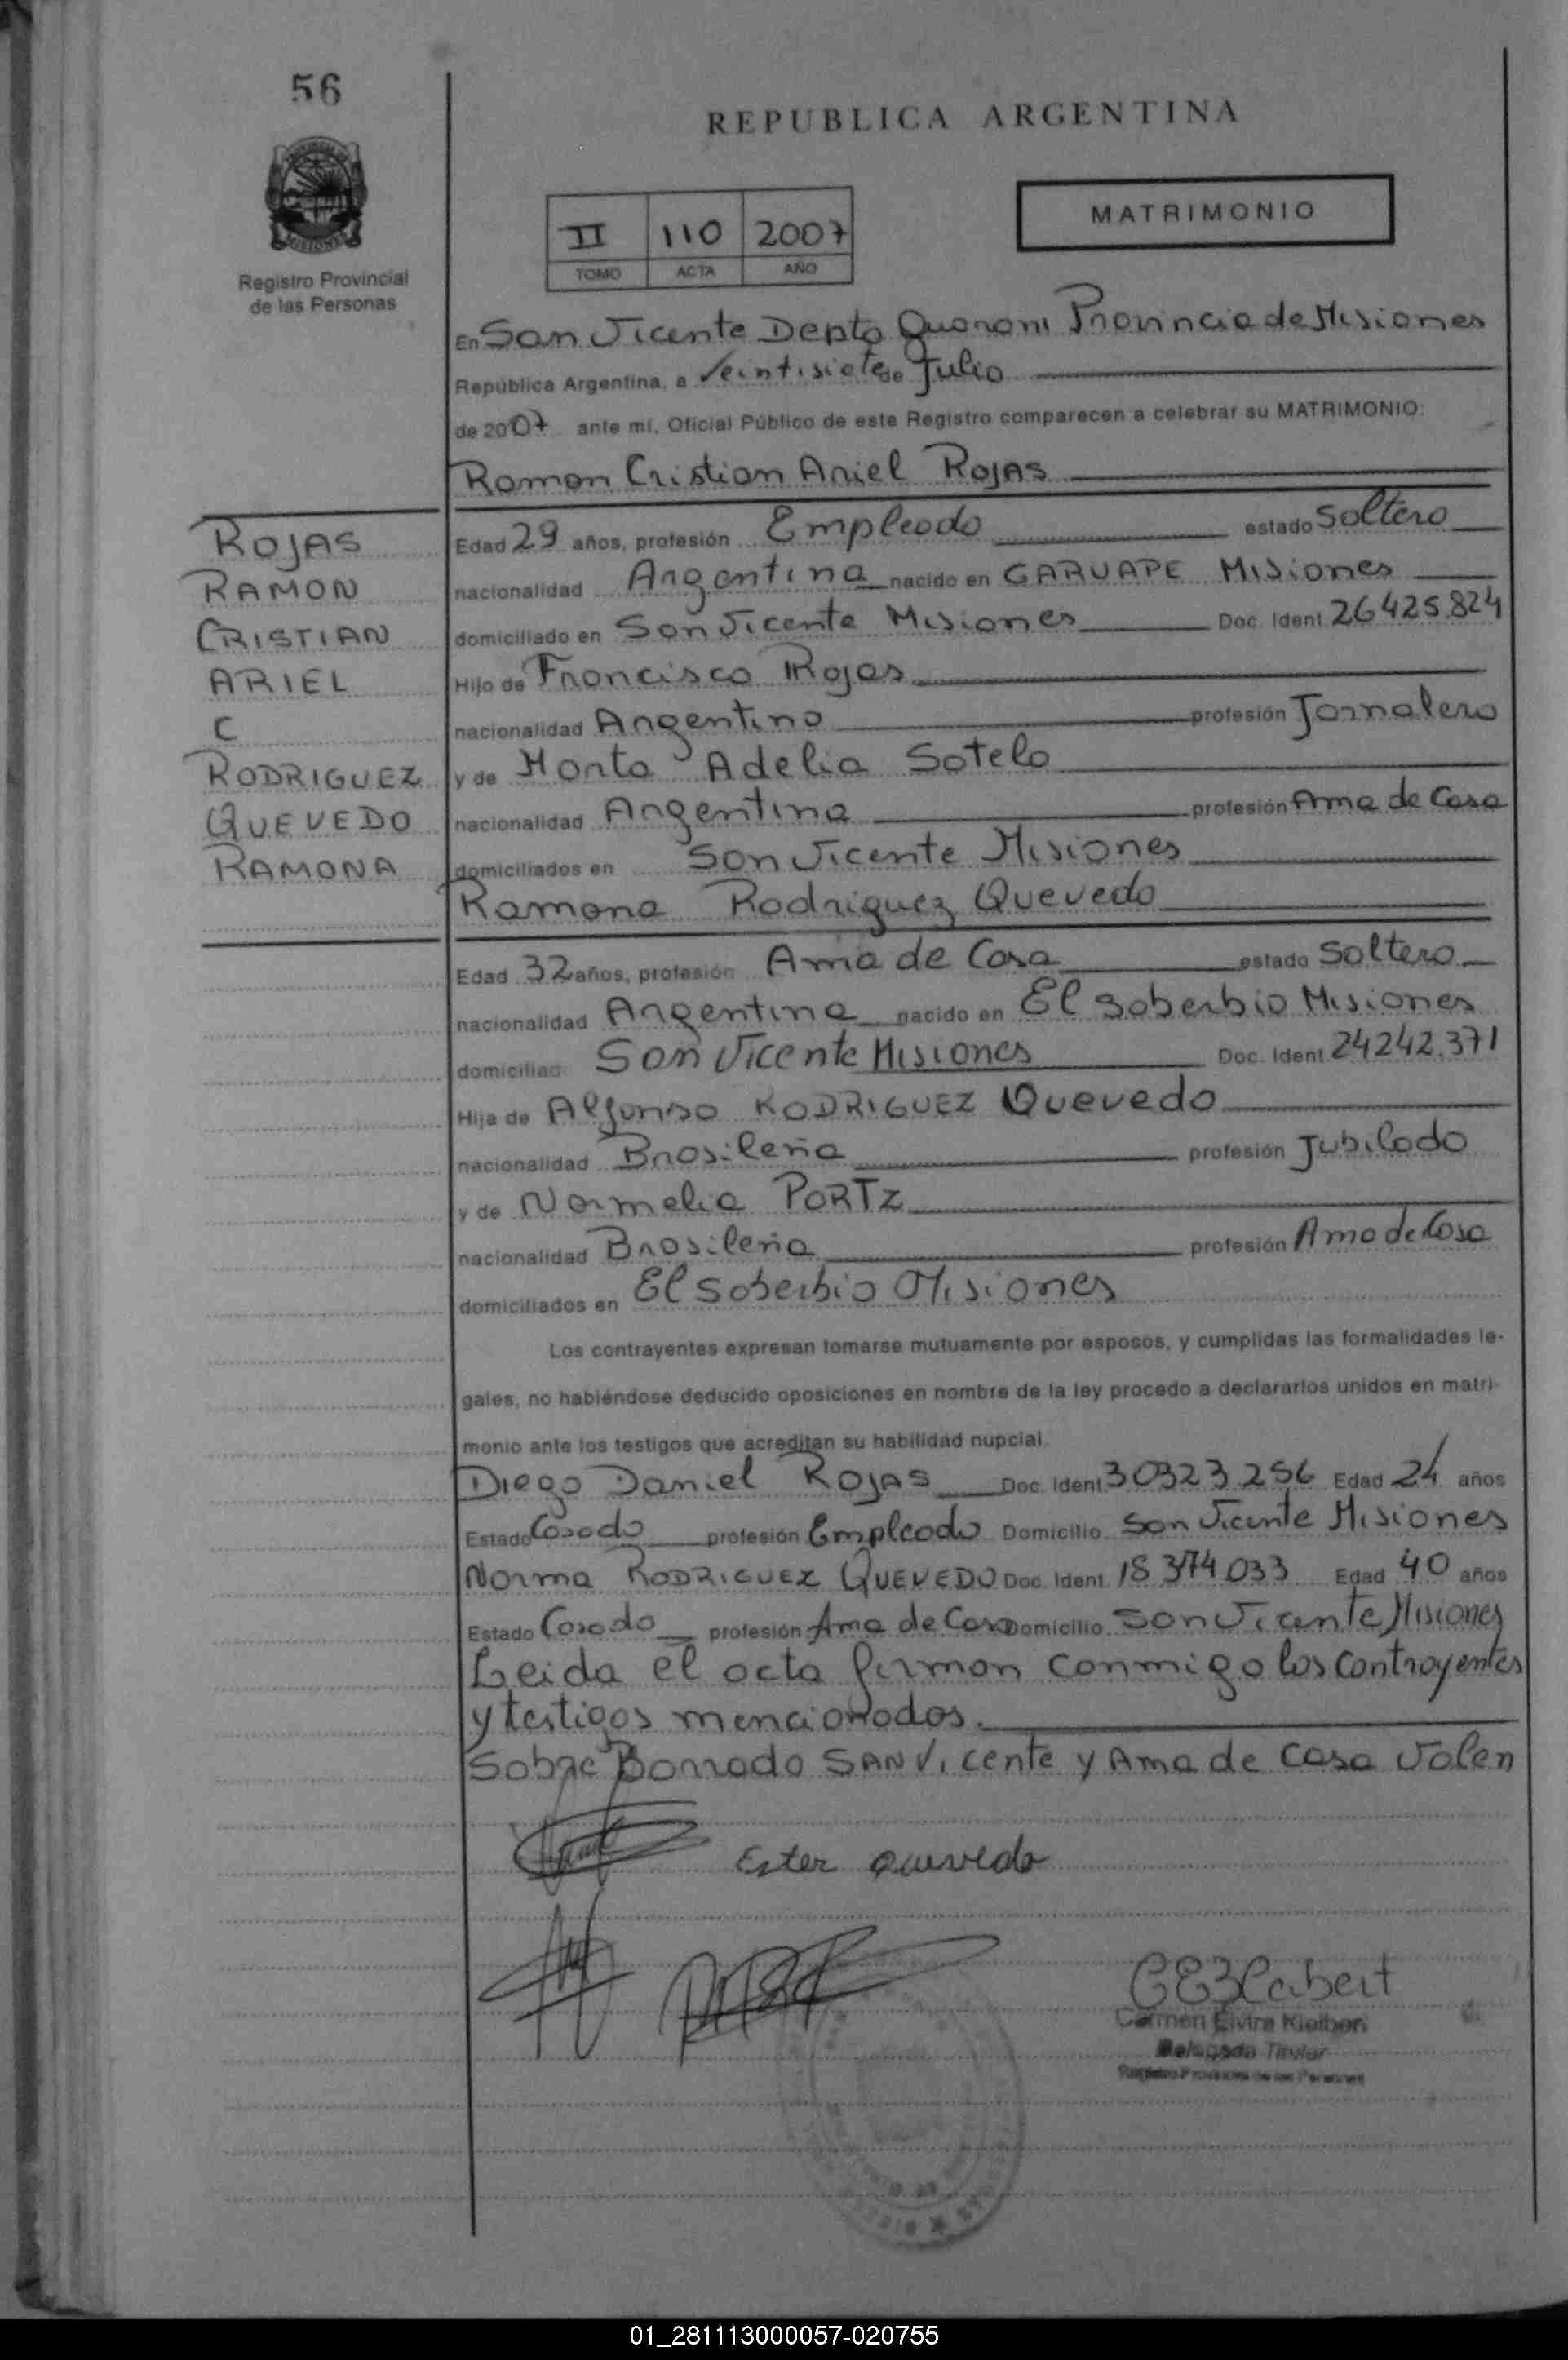 56
REPUBLICA ARGENTINA
MISIONES
Registro Provincial
de las Personas
II 110 2007
TOMO ACTA AÑO
MATRIMONIO
En San Vicente Depto Guarani Provincia de Misiones
República Argentina, a Veintisiete de Julio
de 2007 ante mí, Oficial Público de este Registro comparecen a celebrar su MATRIMONIO:
Ramon Cristian Ariel Rojas
ROJAS
RAMON
CRISTIAN
ARIEL
C
RODRIGUEZ
QUEVEDO
RAMONA
Edad 29 años, profesión Empleado estado Soltero
nacionalidad Argentina nacido en GARUAPE Misiones
domiciliado en San Vicente Misiones Doc. Ident. 26425.824
Hijo de Francisco Rojas
nacionalidad Argentino profesión Jornalero
y de Marta Adelia Sotelo
nacionalidad Argentina profesión Ama de Casa
domiciliados en San Vicente Misiones
Ramona Rodriguez Quevedo
Edad 32 años, profesión Ama de Casa estado Soltera
nacionalidad Argentina nacido en El Soberbio Misiones
domiciliad San Vicente Misiones Doc. Ident. 24242.371
Hija de Alfonso RODRIGUEZ Quevedo
nacionalidad Brasileña profesión Jubilado
y de Normelia PORTZ
nacionalidad Brasileña profesión Ama de Casa
domiciliados en El Soberbio Misiones
Los contrayentes expresan tomarse mutuamente por esposos, y cumplidas las formalidades le-
gales, no habiéndose deducido oposiciones en nombre de la ley procedo a declararlos unidos en matri-
monio ante los testigos que acreditan su habilidad nupcial.
Diego Daniel ROJAS Doc. Ident. 30323.256 Edad 24 años
Estado Casado profesión Empleado Domicilio San Vicente Misiones
Norma RODRIGUEZ QUEVEDO Doc. Ident. 18.374.033 Edad 40 años
Estado Casada profesión Ama de Casa Domicilio San Vicente Misiones
Leida el acta firman conmigo los contrayentes
y testigos mencionados.
Sobre Borrado SAN Vicente y Ama de Casa Valen
Ester Quevedo
Carmen Elvira
Delegada Titular
Registro Provincial de las Personas
01_281113000057-020755